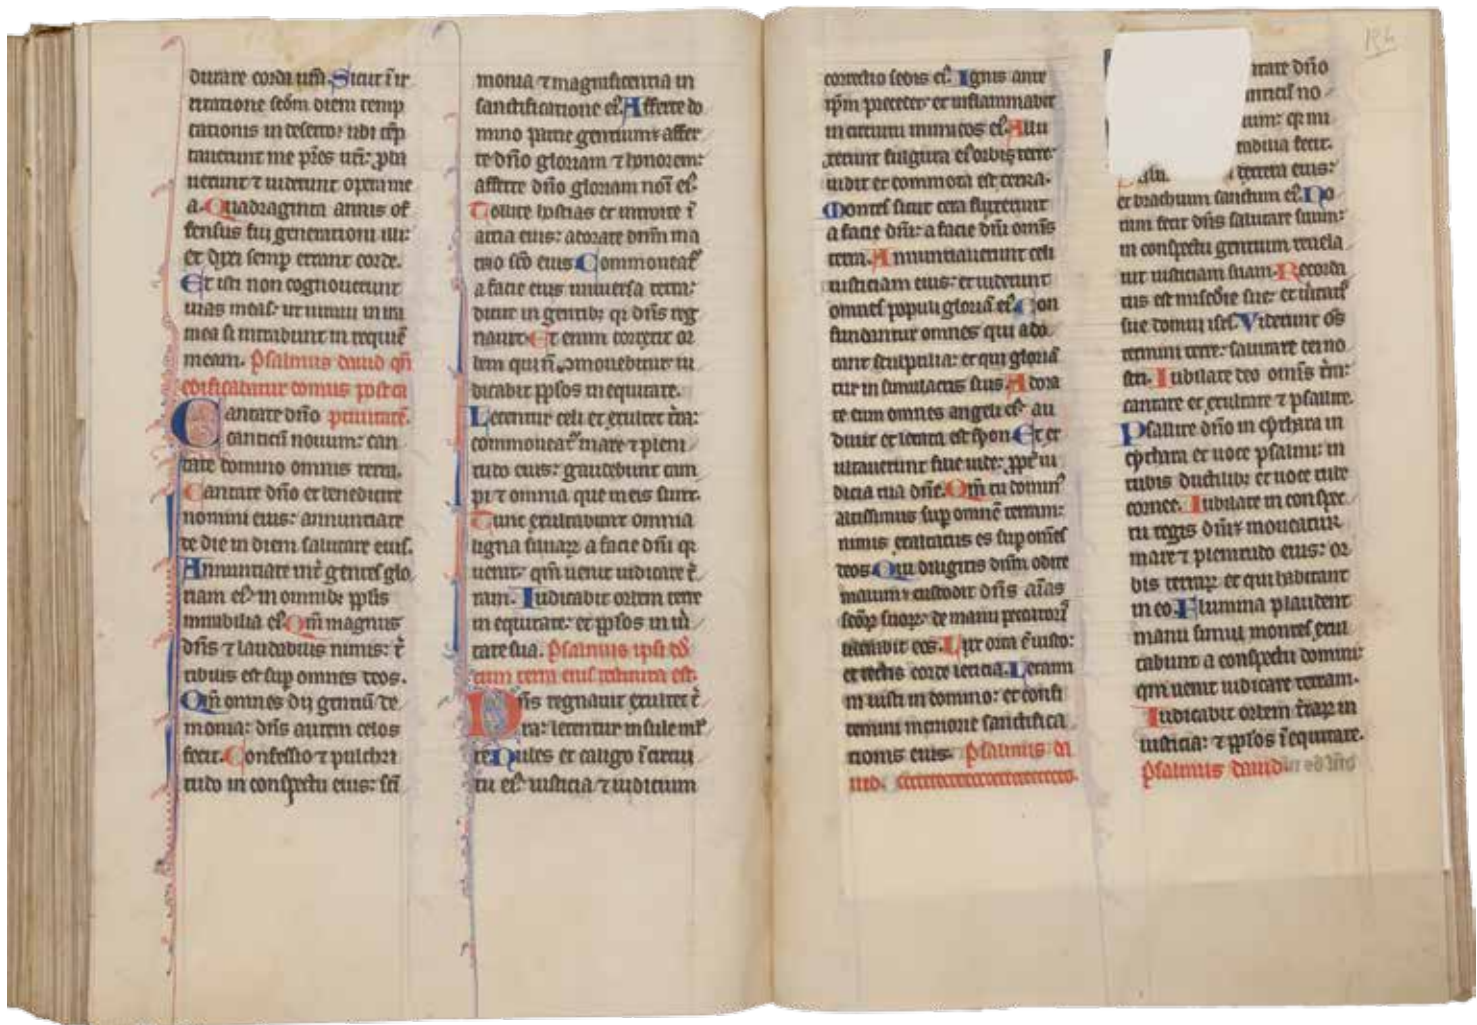 durate corda ur̃a. Sicut ĩ ir
ritatione scd̃m diem temp
tationis in deserto: ubi tẽp
tauerunt me pr̃es ur̃i: ꝓba
uerunt ⁊ uiderunt opera me
a. Quadraginta annis of
fensus fui generationi illi:
et dixi semp errant corde.
Et isti non cognouerunt
uias meas: ut iuraui in ira
mea si intrabunt in requiẽ
meam. Psalmus dauid qñ
edificabatur domus post ca
Cantate dño ptiuitatẽ.
canticũ nouum: can
tate domino omnis terra.
Cantate dño et benedicite
nomini eius: annunciate
de die in diem salutare eius.
Annunciate int̉ gentes glo
riam ei᷒ in omnibꝫ ppl̃is
mirabilia ei᷒. Qm̃ magnus
dñs ⁊ laudabilis nimis: t̉
ribilis est sup omnes deos.
Qm̃ omnes dij gentiũ de
monia: dñs autem celos
fecit. Confessio ⁊ pulchri
tudo in conspectu eius: sc̃i
monia ⁊ magnificentia in
sanctificatione ei᷒. Afferte do
mino patrie gentium: affer
te dño gloriam ⁊ honorem:
afferte dño gloriam noĩ ei᷒.
Tollite hostias et introite ĩ
atria eius: adorate dñm in a
trio sc̃o eius. Commoueat᷑
a facie eius uniuersa terra:
dicite in gentibꝫ qꝛ dñs reg
nauit. Et enim correxit or
bem qui ñ ꝯmouebitur iu
dicabit ppl̃os in equitate.
Letentur celi et exultet t̉ra:
commoueat᷑ mare ⁊ pleni
tudo eius: gaudebunt cam
pi ⁊ omnia que in eis sunt.
Tunc exultabunt omnia
ligna siluaꝝ a facie dñi qꝛ
uenit: qm̃ uenit iudicare t̉
ram. Iudicabit orbem terre
in equitate: et ppl̃os in ui
tate sua. Psalmus ipsi dd̃
cum terra eius restituta est.
Dñs regnauit exultet t̉
ra: letentur insule ml̃
te. Nubes et caligo ĩ circui
tu ei᷒ iusticia ⁊ iudicium
correctio sedis ei᷒. Ignis ante
ip̃m precedet: et inflammabit
in circuitu inimicos ei᷒. Allu
xerunt fulgura ei᷒ orbis terre:
uidit et commota est terra.
Montes sicut cera fluxerunt
a facie dñi: a facie dñi omĩs
terra. Annunciauerunt celi
iusticiam eius: et uiderunt
omnes populi gloriã ei᷒. Con
fundantur omnes qui ado
rant sculptilia: et qui gloriã
tur in simulacris suis. Adora
te eum omnes angeli ei᷒: au
diuit et letata est syon. Et ex
ultauerunt filie iude: ꝓpt̉ iu
dicia tua dñe. Qm̃ tu domin᷒
altissimus sup omnẽ terram:
nimis exaltatus es sup omẽs
deos. Qui diligitis dñm odite
malum: custodit dñs aĩas
sc̃oꝝ suoꝝ: de manu peccatoris
liberabit eos. Lux orta ẽ iusto:
et rectis corde leticia. Letami
ni iusti in domino: et confi
temini memorie sanctifica
tionis eius. Psalmus da
uid.
tate dño
no
um: qꝛ mi
rabilia fecit.
Salu dextera eius:
et brachium sanctum ei᷒. No
tum fecit dñs salutare suum:
in conspectu gentium reuela
uit iusticiam suam. Recorda
tus est miscd̃ie sue: et ueritatis
sue domui isrl̃. Viderunt oẽs
termini terre: salutare dei no
stri. Iubilate deo omĩs t̉ra:
cantate et exultate ⁊ psallite.
Psallite dño in cythara in
cythara et uoce psalmi: in
tubis ductilibꝫ et uoce tube
cornee. Iubilate in conspec
tu regis dñi: moueatur
mare ⁊ plenitudo eius: or
bis terraꝝ et qui habitant
in eo. Flumina plaudent
manu simul montes exul
tabunt a conspectu domini:
qm̃ uenit iudicare terram.
Iudicabit orbem t̉raꝝ in
iusticia: ⁊ ppl̃os ĩ equitate.
Psalmus dauid